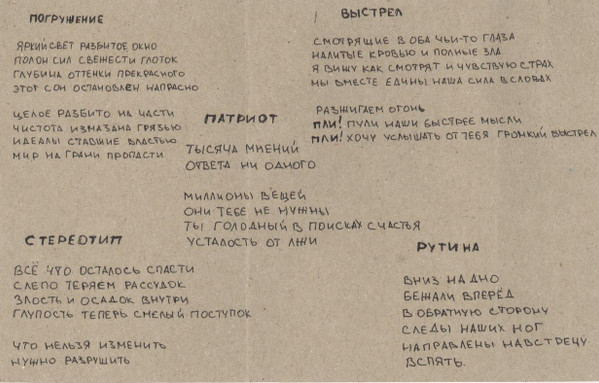 ПОГРУЖЕНИЕ
ЯРКИЙ СВЕТ РАЗБИТОЕ ОКНО
ПОЛОН СИЛ СВЕЖЕСТИ ГЛОТОК
ГЛУБИНА ОТТЕНКИ ПРЕКРАСНОГО
ЭТОТ СОН ОСТАНОВЛЕН НАПРАСНО
ЦЕЛОЕ РАЗБИТО НА ЧАСТИ
ЧИСТОТА ИЗМАЗАНА ГРЯЗЬЮ
ИДЕАЛЫ СТАВШИЕ ВЛАСТЬЮ
МИР НА ГРАНИ ПРОПАСТИ
ВЫСТРЕЛ
СМОТРЯЩИЕ В ОБА ЧЬИ-ТО ГЛАЗА
НАЛИТЫЕ КРОВЬЮ И ПОЛНЫЕ ЗЛА
Я ВИЖУ КАК СМОТРЯТ И ЧУВСТВУЮ СТРАХ
МЫ ВМЕСТЕ ЕДИНЫ НАША СИЛА В СЛОВАХ
РАЗЖИГАЕМ ОГОНЬ
ПЛИ! ПУЛИ НАШИ БЫСТРЕЕ МЫСЛИ
ПЛИ! ХОЧУ УСЛЫШАТЬ ОТ ТЕБЯ ГРОМКИЙ ВЫСТРЕЛ
ПАТРИОТ
ТЫСЯЧА МНЕНИЙ
ОТВЕТА НИ ОДНОГО
МИЛЛИОНЫ ВЕЩЕЙ
ОНИ ТЕБЕ НЕ НУЖНЫ
ТЫ ГОЛОДНЫЙ В ПОИСКАХ СЧАСТЬЯ
УСТАЛОСТЬ ОТ ЛЖИ
СТЕРЕОТИП
ВСЁ ЧТО ОСТАЛОСЬ СПАСТИ
СЛЕПО ТЕРЯЕМ РАССУДОК
ЗЛОСТЬ И ОСАДОК ВНУТРИ
ГЛУПОСТЬ ТЕПЕРЬ СМЕЛЫЙ ПОСТУПОК
ЧТО НЕЛЬЗЯ ИЗМЕНИТЬ
НУЖНО РАЗРУШИТЬ
РУТИНА
ВНИЗ НА ДНО
БЕЖАЛИ ВПЕРЁД
В ОБРАТНУЮ СТОРОНУ
СЛЕДЫ НАШИХ НОГ
НАПРАВЛЕНЫ НАВСТРЕЧУ
ВСПЯТЬ.